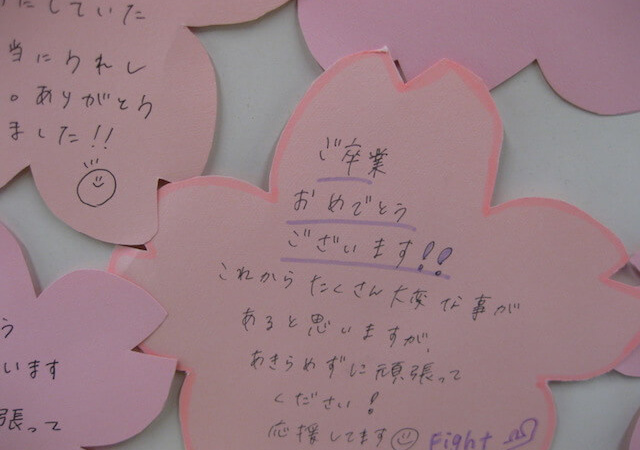 にしていた
当にうれし
。ありがとう
ました!!
ご卒業
おめでとう
ございます!!
これからたくさん大変な事が
あると思いますが、
あきらめずに頑張って
ください!
応援してます Fight
う
います
張って